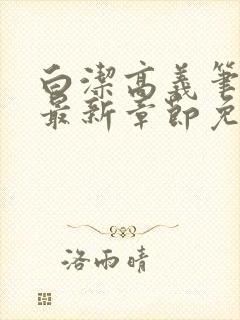 白潔高義筆
最新章節免
洛雨晴